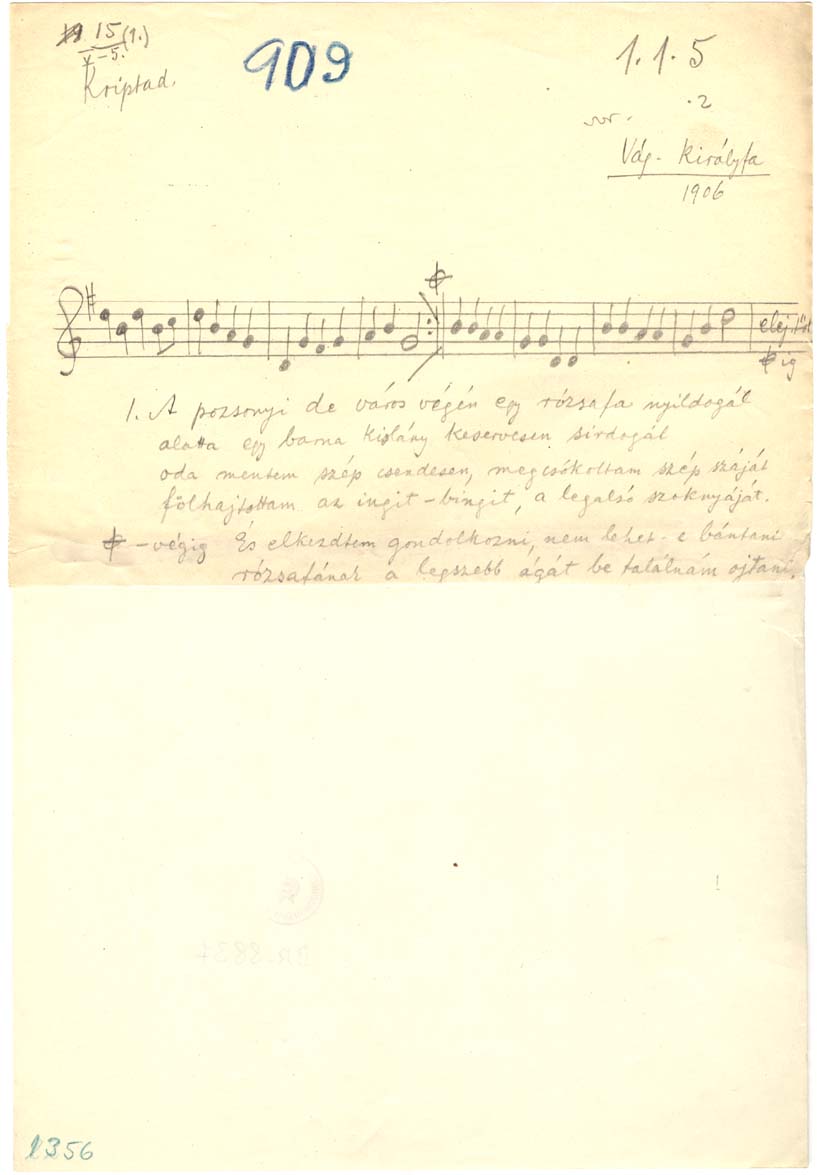 15 (1.)
V-5.
Kriptad.
909
1.1.5
.2
Vág-Királyfa
1906
elej.
ig
1. A pozsonyi de város végén egy rózsafa nyildogál
alatta egy barna kislány keservesen sirdogál
oda mentem szép csendesen, megcsókoltam szép száját
fölhajtottam az ingit-bingit, a legalsó szoknyáját.
-végig És elkezdtem gondolkozni, nem lehet-e bántani
rózsafának a legszebb ágát be találnám ojtani.
1356